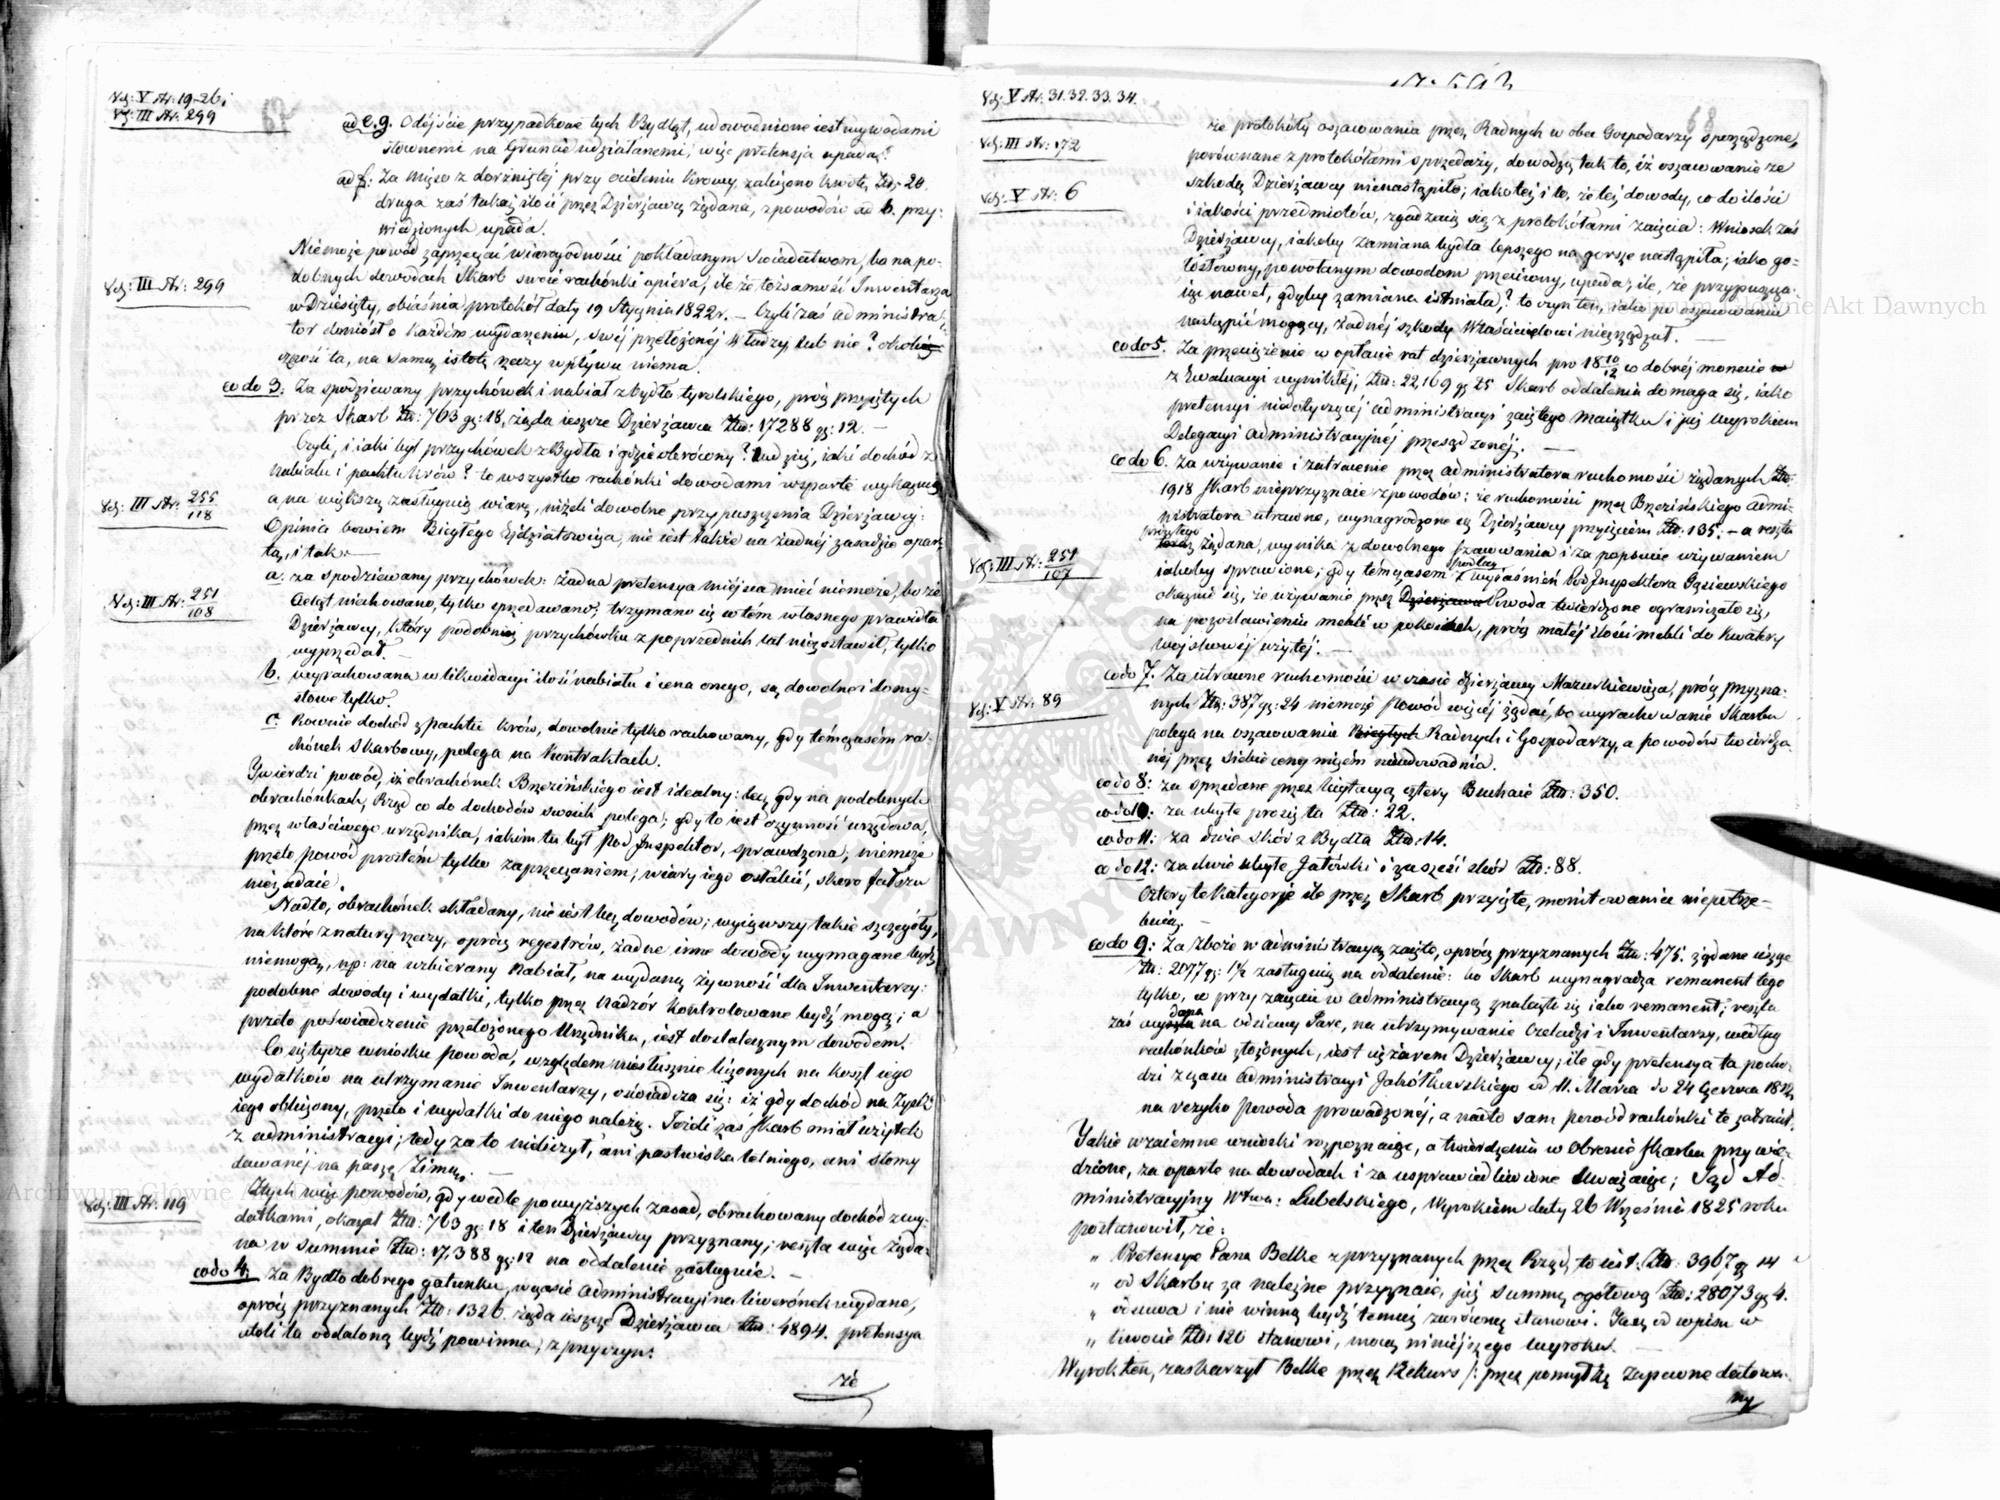 Vol: V Str: 19-26;
Vol: III Str. 299
ad e.g. Odéjście przypadkowe tych Bydląt, udowodnione iest wywodami
słownemi na Gruncie udziałanemi, więc pretensja upada.
ad f: Za mięso z dorżniętej przy ocieleniu krowy, zaliczono kwotę Złp: 20.
druga zaś takaż ilość przez Dzierżawcę żądana, z powodów ad b. przy-
wiedzionych upada.
Niemoże powód zaprzeczać wiarogodności pokładanym Swiadectwom, bo na po-
Vol: III Str: 299
dobnych dowodach Skarb swoie rachónki opiera, ile że tożsamość Inwentarza
w Dziesięty, obiaśnia protokół daty 19 Stycznia 1822 r. — Czyli zaś administra-
tor doniósł o każdém wydarzeniu, swéj przełożonéj Władzy, lub nie? okolicz-
czność ta, na samą istotę rzeczy wpływu niema.
co do 3: Za spodziewany przychówek i nabiał z bydła tyrolskiego, prócz przyiętych
przez Skarb Złp: 763 gr: 18, żąda ieszcze Dzierżawca Złp: 17288 gr: 12. —
Czyli, i iaki był przychówek z Bydła i gdzie obrócony? tudzież, iaki dochód z
nabiału i pachtu krów? to wszystko rachónki dowodami wsparte wykazuią
Vol: III Str: 255/118
a na większą zasługuią wiarę, niżeli dowolne przypuszczenia Dzierżawcy:
Opinia bowiem Biegłego Eydziatowicza, nie iest także na żadnéj zasadzie opar-
tą, i tak:
a. za spodziewany przychówek: żadna pretensya miéjsca mieć niemoże, bo że
Vol: III Str: 251/108
Cieląt niechowano, tylko sprzedawano; trzymano się w tém własnego prawidła
Dzierżawcy, który podobnież przychówku z poprzednich lat niezostawił, tylko
wyprzedał. —
b. wyrachowana w likwidacyi ilość nabiału i cena onego, są dowolne i domy-
słowe tylko.
c. Rownie dochód z pachtu krów, dowolnie tylko rachowany, gdy témczasém ra-
chónek Skarbowy, polega na Kontraktach.
Twierdzi powód, iż obrachónek Brzezińskiego iest idealny: lecz gdy na podobnych
obrachónkach, Rząd co do dochodów swoich polega; gdy to iest czynność urzędowa,
przez właściwego urzędnika, iakim tu był Pod Inspektor, sprawdzona, niemoże
przeto powód prostém tylko zaprzeczaniem, wiary iego osłabić, skoro fałszu
niezadaie.
Nadto, obrachónek składany, nie iest bez dowodów; wyiąwszy takie szczegóły,
na które z natury rzeczy, oprócz regestrów, żadne inne dowody wymagane bydź
niemogą, np: na uzbierany nabiał, na wydaną żywność dla Inwentarzy:
podobne dowody i wydatki, tylko przez Nadzór kontrolowane bydź mogą; a
przeto poświadczenie przełożonego Urzędnika, iest dostatecznym dowodem.
Co się tycze wniosku powoda, względem niesłusznie liczonych na koszt iego
wydatków na utrzymanie Inwentarzy, oświadcza się: iż gdy dochód na Zysk
iego obliczony, przeto i wydatki do niego należą. Jeżeli zaś Skarb miał użytek
z administracyi; tedy za to nieliczył, ani pastwiska letniego, ani słomy
dawanéj na paszę Zimną. —
Z tych więc powodów, gdy wedle powyższych zasad, obrachowany dochód z wy-
Vol: III Str: 119
datkami, okazał Złp: 763 gr: 18 i ten Dzierżawcy przyznany; reszta więc żąda-
na w summie Złp: 17,388 gr: 12 na oddalenie zasługuie. —
co do 4: Za Bydło dobrego gatunku, w czasie administracyi na liwerónek wydane,
oprócz przyznanych Złp: 1326. żąda ieszcze Dzierżawca Złp: 4894. pretensya
atoli ta oddaloną bydź powinna, z przyczyn:
że
68
Vol: V Str. 31. 32. 33. 34.
że protokóły oszacowania przez Radnych w obec Gospodarzy sporządzone,
Vol: III Str: 172
porównane z protokółami sprzedaży, dowodzą tak to, iż oszacowanie ze
Vol: V Str: 6
szkodą Dzierżawcy nienastąpiło; iako też i to, że też dowody, co do ilości
i iakości przedmiotów, zgadzaią się z protokółami zaięcia: Wniosek zaś
Dzierżawcy, iakoby zamiana bydła lepszego na gorsze nastąpiła; iako go-
łosłowny, powołanym dowodom przeciwny, upada; ile, że przypuszcza-
iąc nawet, gdyby zamiana istniała? to czyn ten, iako po oszacowaniu
nastąpić mogący, żadnéj szkody Właścicielowi niezrządzał. —
co do 5. Za przewiżenie w opłacie rat dzierżawnych pro 18 10/12 w dobréj monecie
z Ewaluacyi wynikłéj, Złp: 22,169 gr 25 Skarb oddalenia domaga się, iako
pretensyi niedotyczącej administracyi zaiętego Maiątku i już Wyrokiem
Delegacyi Administracyjnéj przesądzonéj. —
co do 6. Za używanie i zatracenie przez administratora ruchomości żądanych Złp:
1918 Skarb nieprzyznaie z powodów: że ruchomości przez Brzezińskiego admi-
nistratora utracone, wynagrodzone są Dzierżawcy przyięciem Złp: 135. — a reszta
żądana, wynika z dowolnego szacowania i za popsucie używaniem
Vol: III Str: 251/107
iakoby sprawione; gdy témczasem z wyiaśnień Pod Inspektora Gąsiewskiego
okazuie się, że używanie przez Powoda twierdzone ograniczało się,
na pozostawieniu mebli w pokoiach, prócz małéj ilości mebli do Kwatery
woyskowéj użytéj. —
co do 7. Za utracone ruchomości w czasie dzierżawy Mazurkiewicza, prócz przyzna-
Vol: V Str: 89
nych Złp: 387 gr: 24 niemoże Powód więcéj żądać, bo wyrachowanie Skarbu
polega na oszacowaniu Biegłych Radnych i Gospodarzy, a powodów twierdza-
néj przez siebie ceny niczém nieudowadnia.
co do 8: za sprzedane przez licytacyą cztery Buhaie Złp: 350.
co do 10: za ubyłe prosięta Złp: 22.
co do 11: za dwie skór z Bydła Złp: 14.
co do 12: za dwie ubyłe Jałówki i za sześć skór Złp: 88.
Cztery te kategorje ile przez Skarb przyięte, monitowania niepotrze-
buią. —
co do 9: Za zboże w administracyą zaięte, oprócz przyznanych Złp: 475. żądane ieszcze
Złp: 2077 gr: 1½ zasługuią na oddalenie: bo Skarb wynagradza remanent tego
tylko, co przy zaięciu w administracyą znalazło się iako remanent; reszta
zaś wydana na odsiewy Jare, na utrzymywanie Czeladzi i Inwentarzy, według
rachónków złożonych, iest ciężarem Dzierżawcy; ile gdy pretensya ta pocho-
dzi z czasu administracyi Jakółkowskiego od 11. Marca do 24 Czerwca 1812
na rezyko powoda prowadzonéj, a nadto sam powód rachónki te zatracił.
Jakie wzaiemne wnioski rozpoznaiąc, a twierdzenia w Obronie Skarbu przywie-
dzione, za oparte na dowodach i za usprawiedliwione Uważaiąc; Sąd Ad-
ministracyjny Wtwa: Lubelskiego, Wyrokiem daty 26 Września 1825 roku
postanowił, że:
„ Pretensye Pana Belke z przyznanych przez Rząd, to iest: Złp: 3967 gr 14
„ od Skarbu za należne przyznaie, już summę ogółową Złp: 28073 gr 4.
„ odsuwa i nie winną bydź temuż zwróconą stanowi. Jacy od wpisu w
„ kwocie Złp: 126 stanowi, mocą niniéjszego wyroku. —
Wyrok ten, zaskarżył Belke przez Rekurs /: przez pomyłkę zapewne datowa-
ny